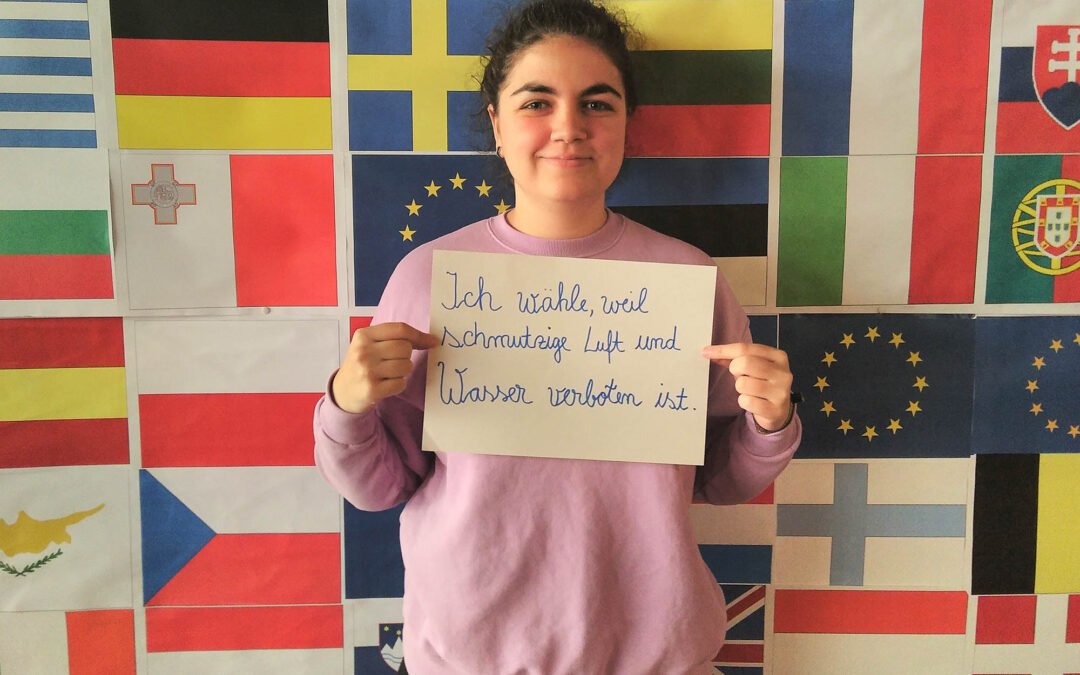 Ich wähle, weil
schmutzige Luft und
Wasser verboten ist.